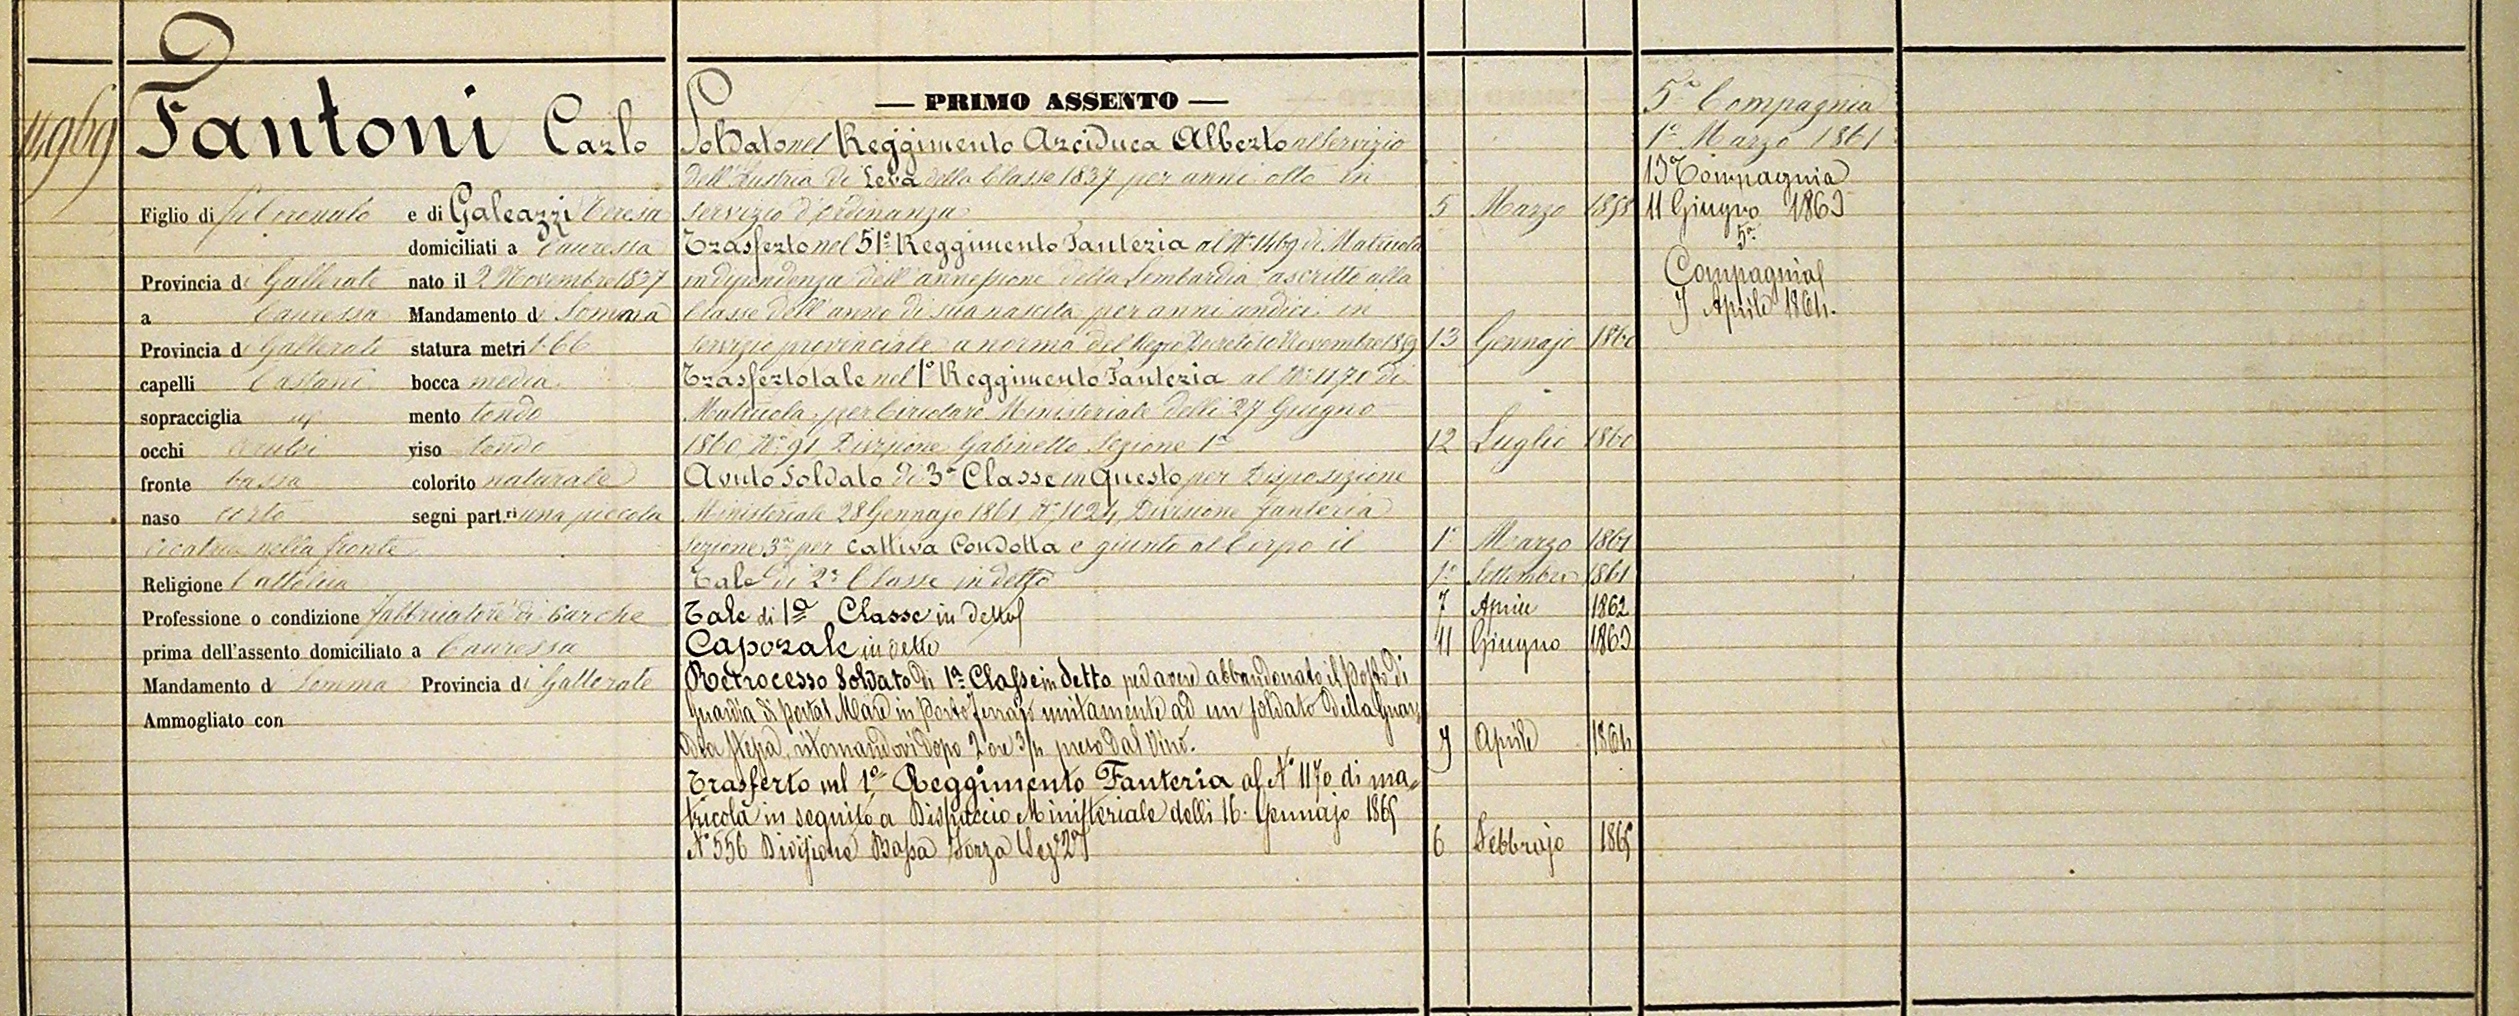 4969
Fantoni Carlo
Figlio di fu Coronato e di Galeazzi Teresa
domiciliati a Cauressa
Provincia di Gallerate nato il 2 Novembre 1837
a Cauressa Mandamento di Somma
Provincia di Gallerate statura metri 1.66
capelli Castani bocca media
sopracciglia id mento tondo
occhi cerulei viso tondo
fronte bassa colorito naturale
naso corto segni part.ri una piccola
Cicatrice nella fronte
Religione Cattolica
Professione o condizione fabbricatore di barche
prima dell'assento domiciliato a Cauressa
Mandamento di Somma Provincia di Gallerate
Ammogliato con
— PRIMO ASSENTO —
Soldato nel Reggimento Arciduca Alberto al Servizio
dell'Austria di Leva della Classe 1837 per anni otto in
servizio d'ordinanza 5 Marzo 1858
Trasferto nel 51° Reggimento Fanteria al N° 1469 di Matricola
in dipendenza dell'annessione della Lombardia ascritto alla
Classe dell'anno di sua nascita per anni undici in
servizio provinciale a norma del Regio Decreto 10 Novembre 1859 13 Gennajo 1860
Trasferto tale nel 1° Reggimento Fanteria al N° 1170 di
Matricola, per Circolare Ministeriale delli 27 Giugno
1860 N° 91 Divisione Gabinetto Sezione 1a 12 Luglio 1860
Avuto Soldato di 3a Classe in questo per Disposizione
Ministeriale 28 Gennajo 1861 N° 1024 Divisione Fanteria
Sezione 3a per cattiva Condotta e giunto al Corpo il 1° Marzo 1861
Tale di 2a Classe in detto 1° Settembre 1861
Tale di 1a Classe in detto 7 Aprile 1862
Caporale in detto 11 Giugno 1863
Retrocesso Soldato di 1a Classe in detto per avere abbandonato il Posto di
Guardia di porta a Mare in Portoferrajo unitamente ad un soldato della Guar
dia stessa, ritornandovi dopo 2 ore 3/4 preso dal vino. 7 Aprile 1864
Trasferto nel 1° Reggimento Fanteria al N° 1170 di ma=
tricola in seguito a Dispaccio Ministeriale delli 16 Gennajo 1865
N° 556 Divisione Bassa Forza Sez. 2a 6 Febbrajo 1865
5a Compagnia
1° Marzo 1861
13a Compagnia
11 Giugno 1863
5a
Compagnia
7 Aprile 1864.